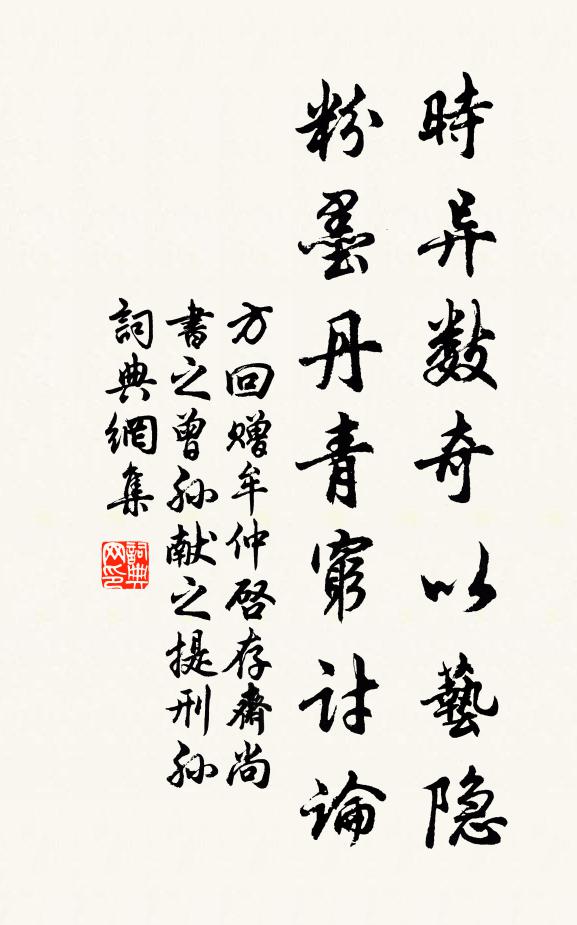 時异数奇以藝隐
粉墨丹青窮討論
方回赠牟仲启存齋尚
書之曾孙献之提刑孙
詞典網集
詞典网印